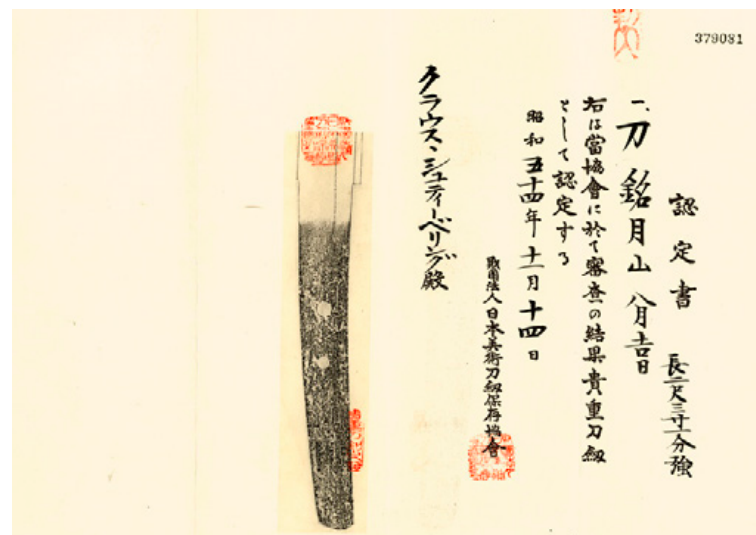 379081
認定書
一、刀 銘月山 八月吉日
長二尺三寸一分強
右は當協會に於て審査の結果貴重刀劔
として認定する
昭和五十四年十一月十四日
財団法人日本美術刀劔保存協會
クラウス・シュティーベリング殿